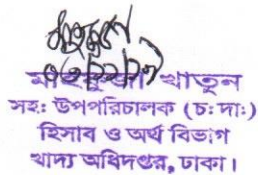 খাতুন
সহ: উপপরিচালক (চ: দা:)
হিসাব ও অর্থ বিভাগ
খাদ্য অধিদপ্তর, ঢাকা।